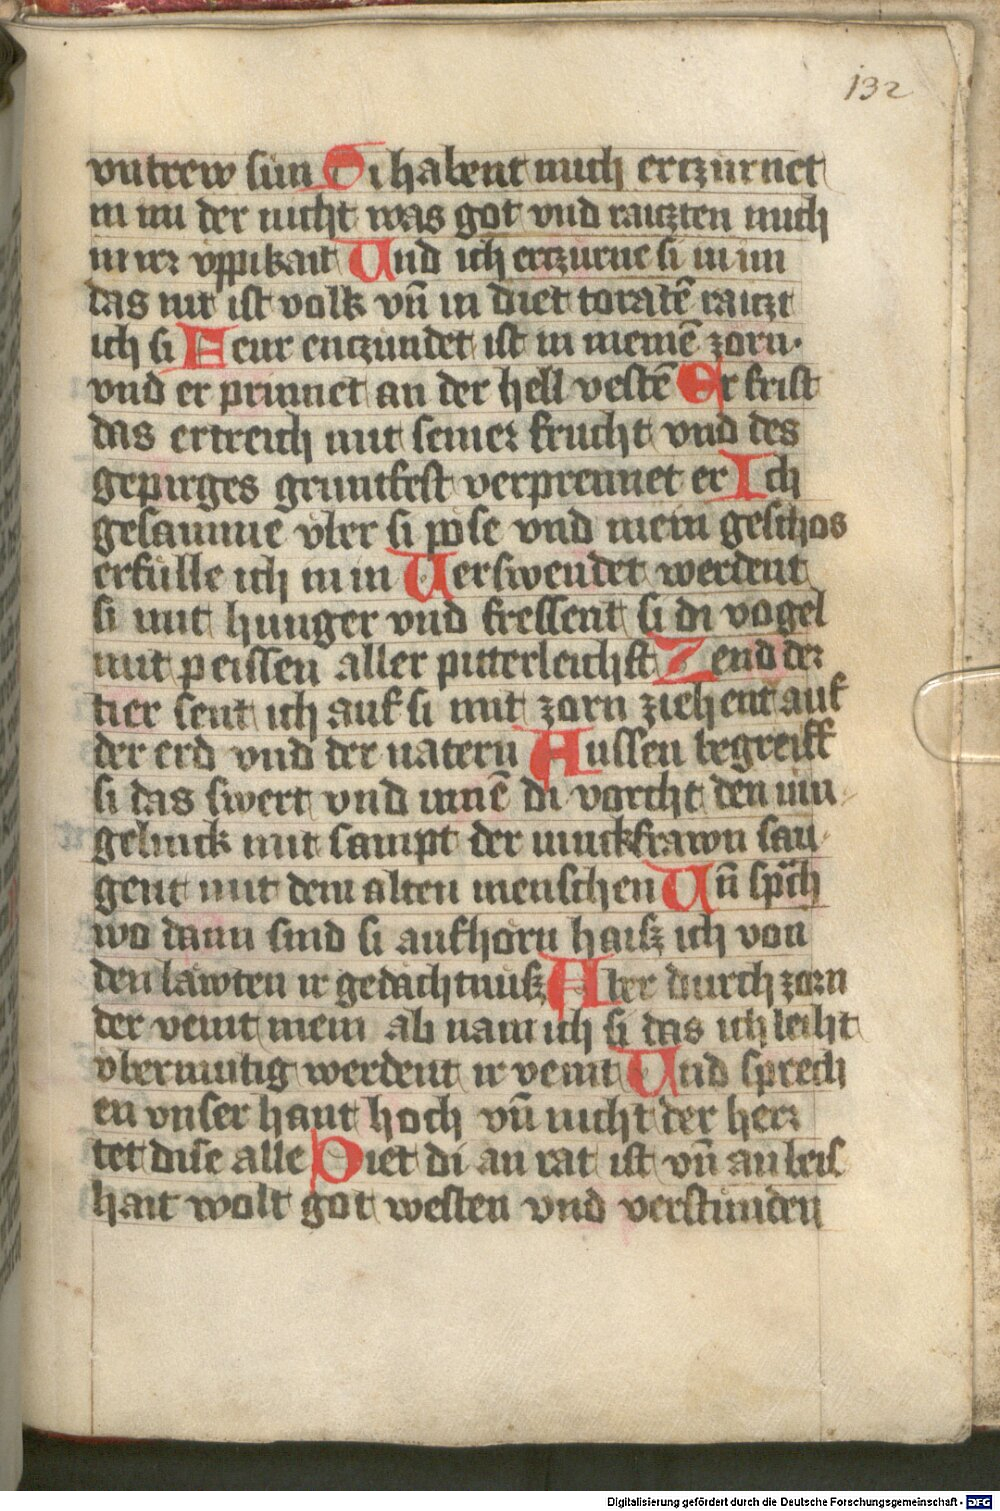 132
vntrew sün Si habent mich erczürnet
in im der nicht was got vnd raiczten mich
in irr vppikait Und ich erczürne si in im
das nit ist volk vn̄ in diet toratē raiczt
ich si Feur enczündet ist in meinē zorn·
vnd er prinnet an der hell vestē Er frist
das ertreich mit seiner frucht vnd des
gepirges gruntfest verprennet er Ich
gesamme vber si pöse vnd mein geschos
erfülle ich in in Verswendet werdent
si mit hunger vnd fressent si di vogel
mit peissen aller pitterleichst Zend der
tier sent ich auf si mit zorn ziehent auf
der erd vnd der natern Aussen begreiff
si das swert vnd innē di vorcht den iün
gelinck mit sampt der iunckfrawn sau
gent mit dem alten menschen Un̄ sprach
wo dann sind si aufhörn haisz ich von
den läwten ir gedächtnüsz Aber durch zorn
der veint mein ab nam ich si das icht leiht
vbermütig werdent ir veint Und sprech
en vnser hant hoch vn̄ nicht der herr
tet dise alle Diet di an rat ist vn̄ an weis
hait wolt got westen vnd verstünden
Digitalisierung gefördert durch die Deutsche Forschungsgemeinschaft - DFG